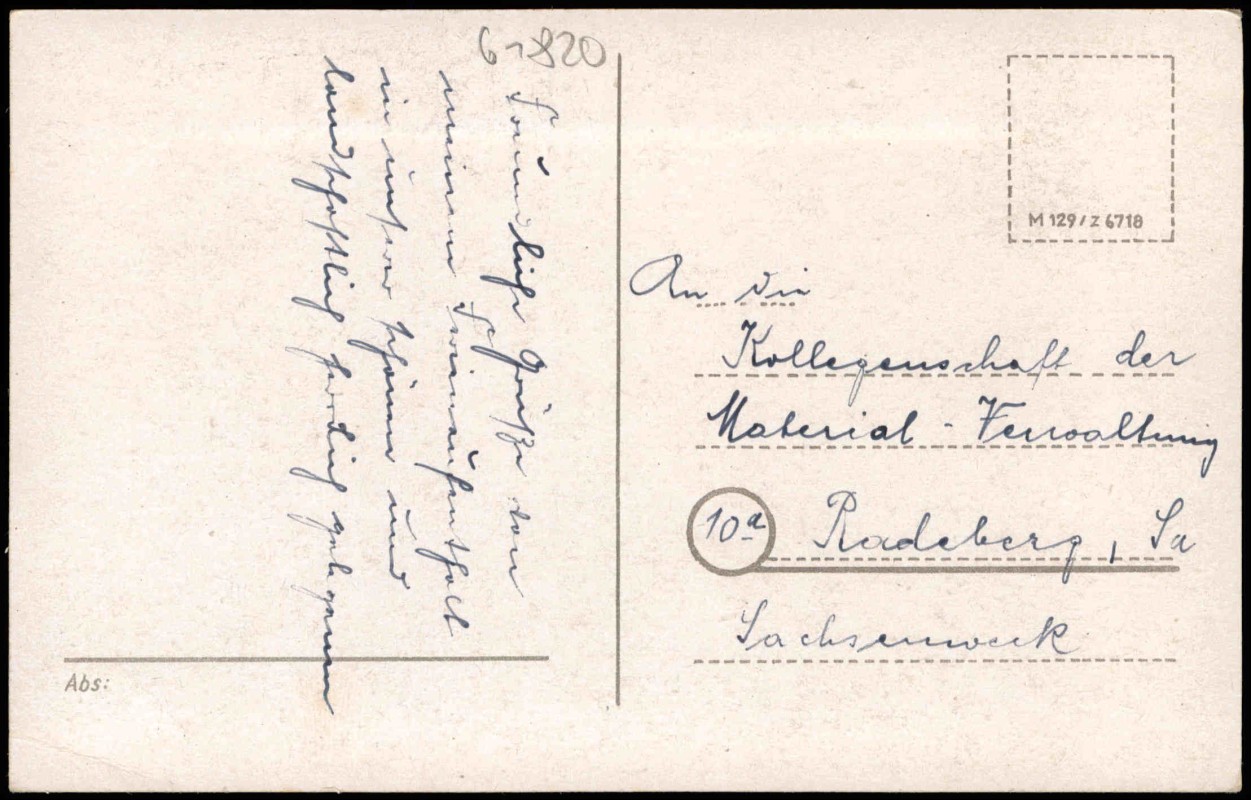 6-820
Freundliche Grüße von
meinem Ferienaufenthalt
in unserer schönen und
landschaftlich herrlich gelegenen
Abs:
M 129 / Z 6718
An die
Kollegenschaft der
Material - Verwaltung
10a Radeberg, Sa
Sachsenwerk